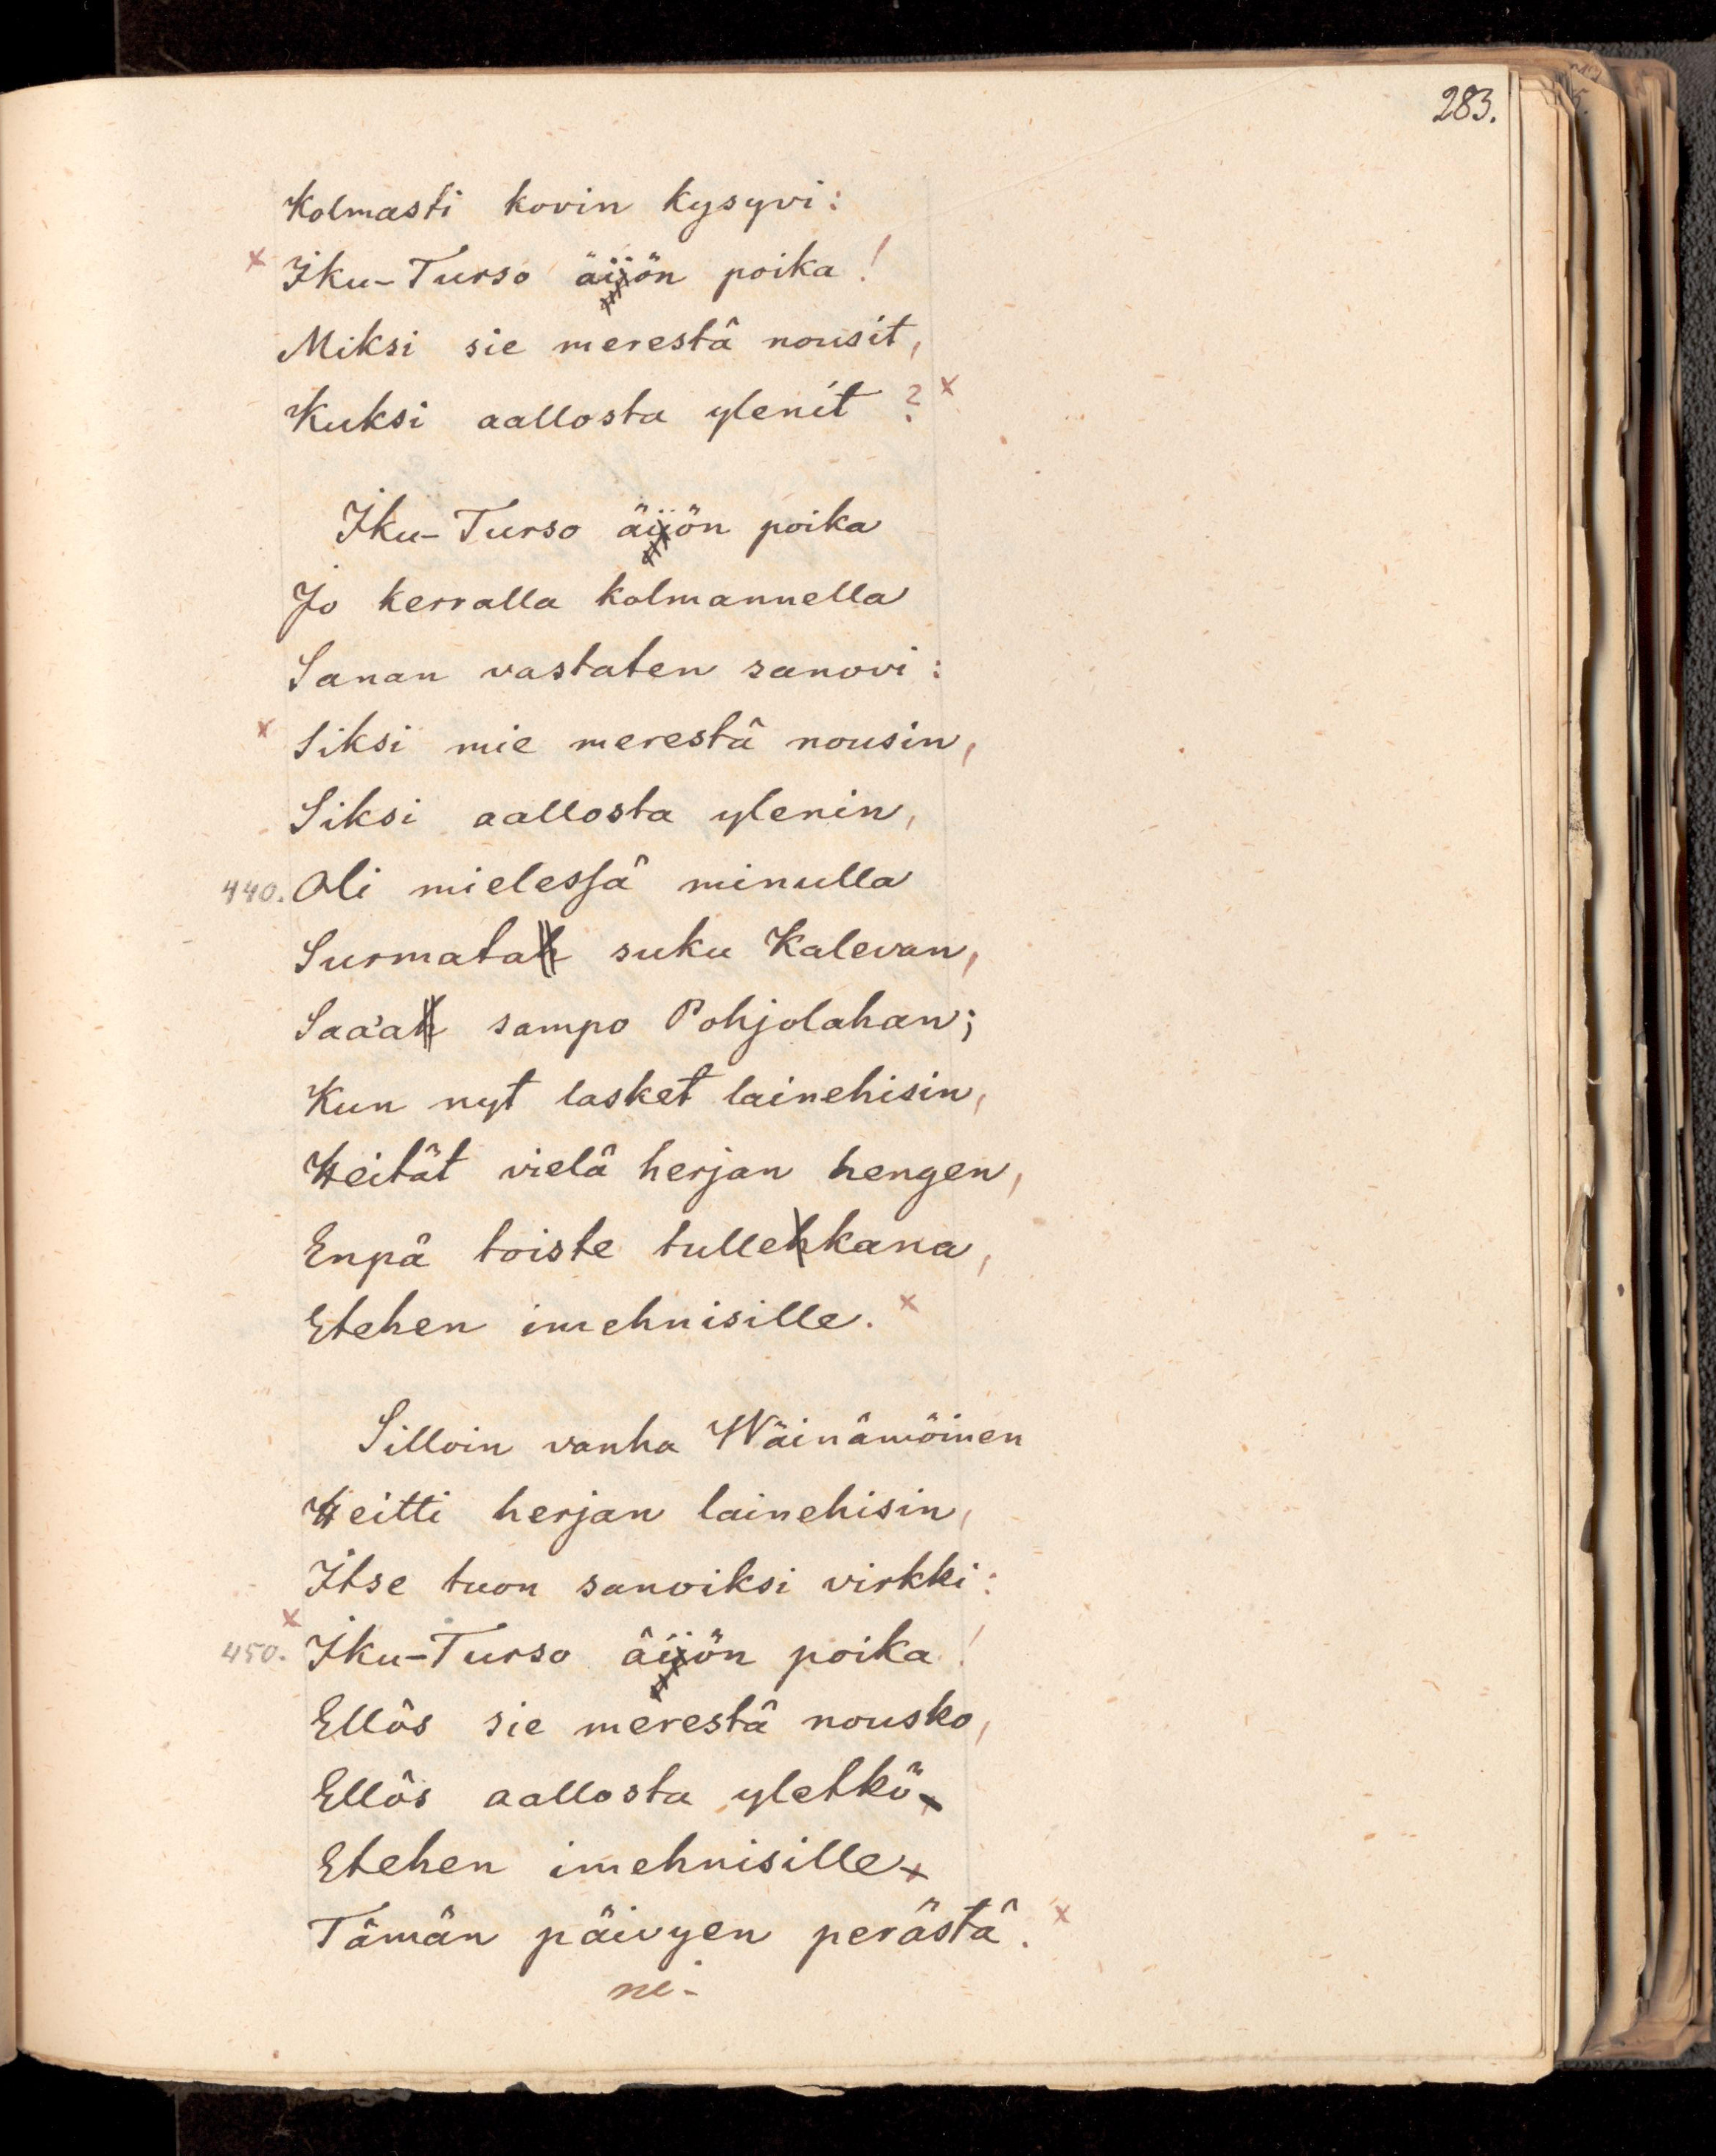 283.
Kolmasti kovin kysyvi:
× Iku-Turso äijön poika!
Miksi sie merestä nousit,
Kuksi aallosta ylenit? ×
Iku-Turso äijön poika
Jo kerralla kolmannella
Sanan vastaten sanovi:
× Siksi mie merestä nousin,
Siksi aallosta ylenin,
440. Oli mielessä minulla
Surmatah suku Kalevan,
Saa'ah sampo Pohjolahan;
Kun nyt lasket lainehisin,
Heität vielä herjan hengen,
Enpä toiste tullehkana,
Etehen imehnisille. ×
Silloin vanha Wäinämöinen
Heitti herjan lainehisin,
Itse tuon sanoiksi virkki:
× 450. Iku-Turso äijön poika!
Ellös sie merestä nousko,
Ellös aallosta yletkö
Etehen imehnisille
Tämän päivyen perästä. ×
ni-